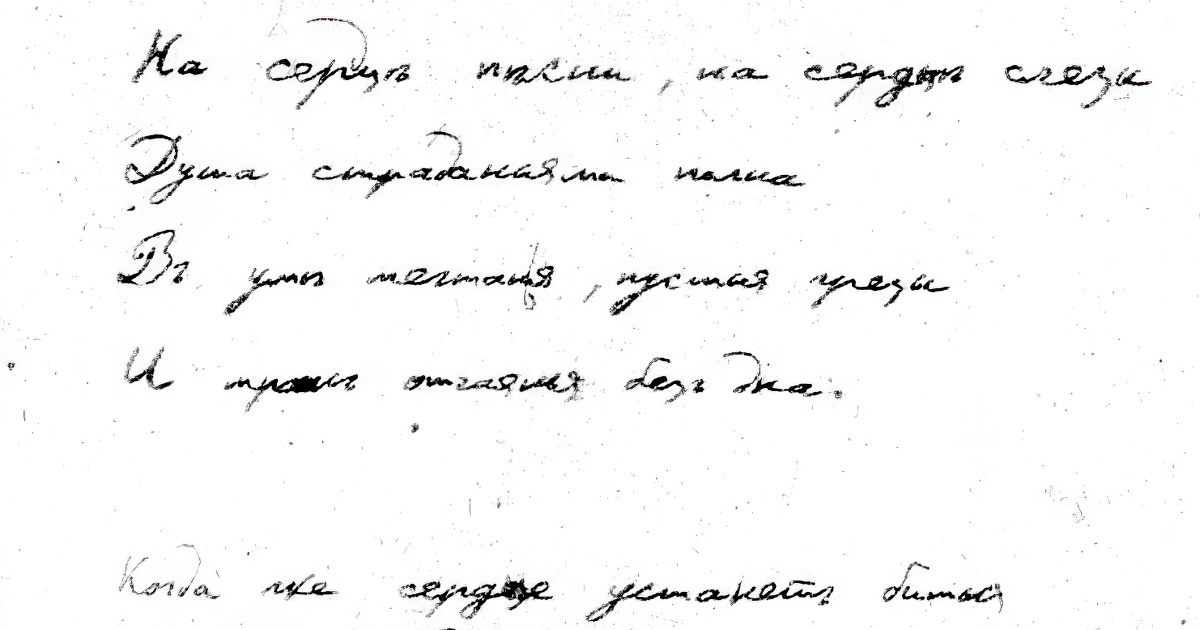 На сердцѣ пѣсни, на сердцѣ слезы
Душа страданьями полна
Въ умѣ мечтанья, пустыя грезы
И мракъ отчаянья безъ дна.
Когда же сердце устанетъ биться